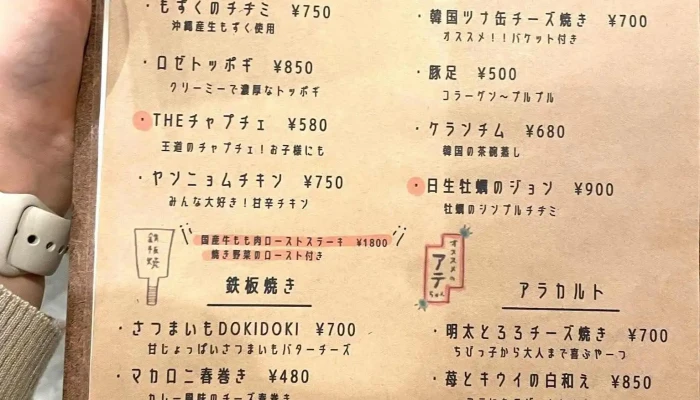 ・もずくのチヂミ ¥750
沖縄産生もずく使用
・ロゼトッポギ ¥850
クリーミーで濃厚なトッポギ
・THEチャプチェ ¥580
王道のチャプチェ！お子様にも
・ヤンニョムチキン ¥750
みんな大好き！甘辛チキン
鉄板焼
国産牛もも肉ローストステーキ ¥1800
焼き野菜のロースト付き
鉄板焼き
・さつまいもDOKIDOKI ¥700
甘じょっぱいさつまいもバターチーズ
・マカロニ春巻き ¥480
カレー風味のチーズ春巻き
・韓国ツナ缶チーズ焼き ¥700
オススメ！！バケット付き
・豚足 ¥500
コラーゲン〜プルプル
・ケランチム ¥680
韓国の茶碗蒸し
・日生牡蠣のジョン ¥900
牡蠣のシンプルチヂミ
オススメの
アテ
ちゃん
アラカルト
・明太とろろチーズ焼き ¥700
ちびっ子から大人まで喜ぶやーつ
・苺とキウイの白和え ¥850